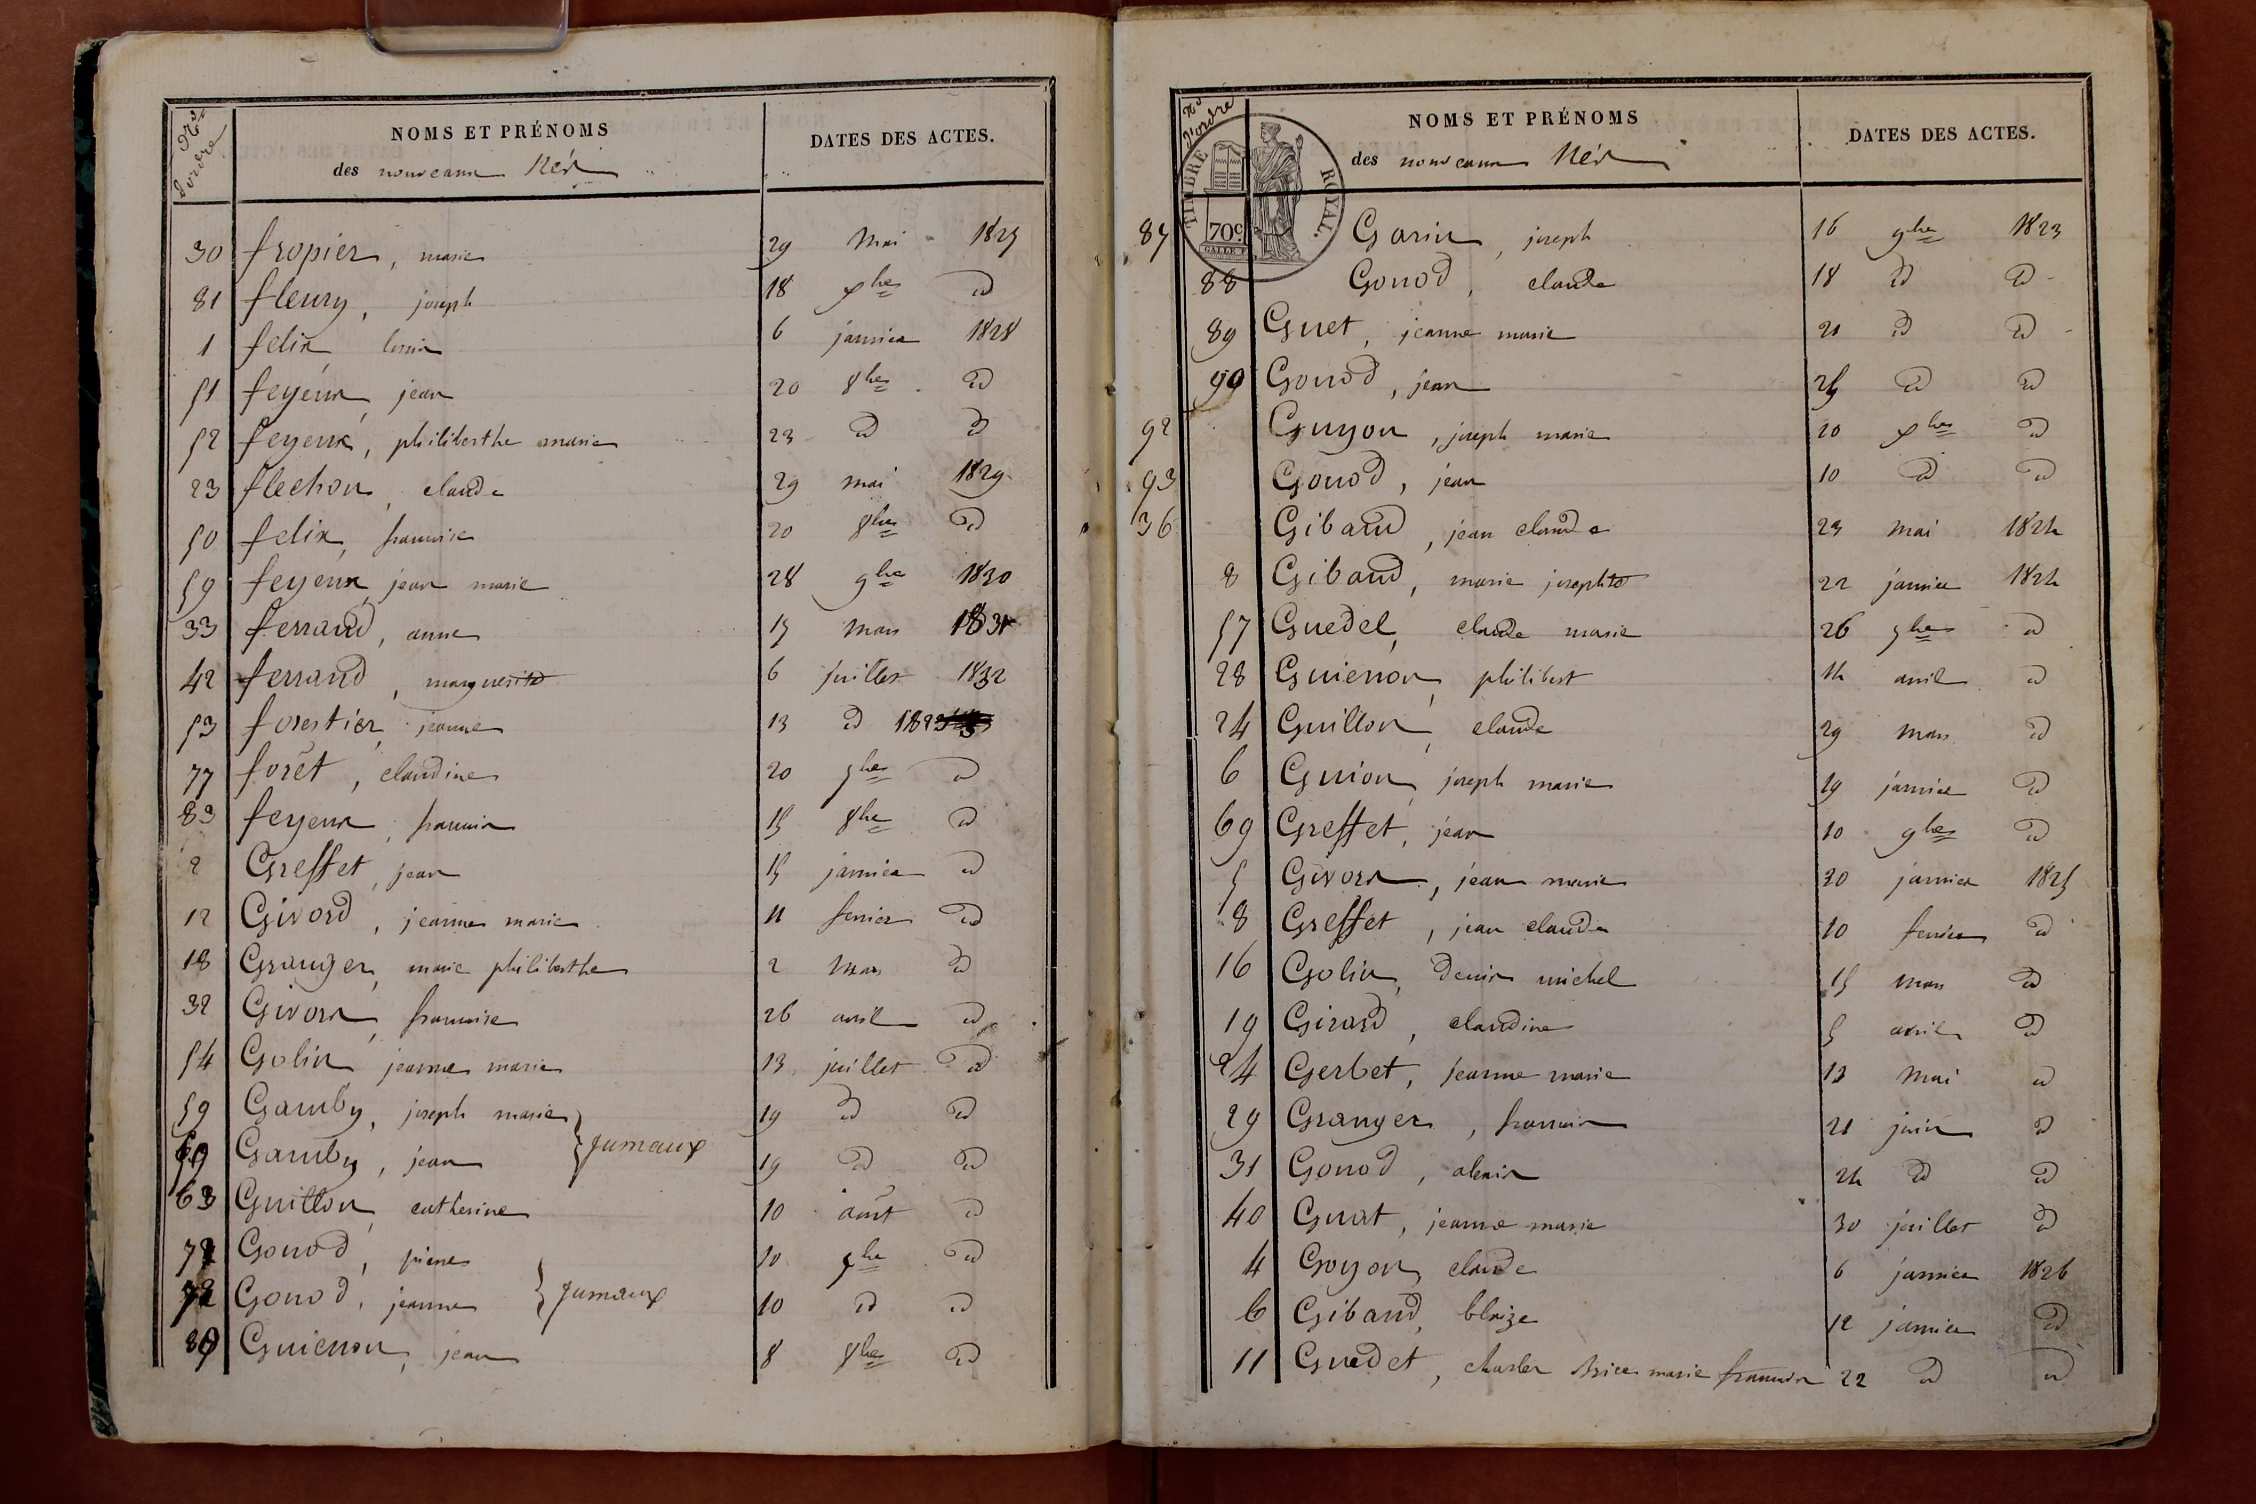 Nos d'ordre
NOMS ET PRÉNOMS
des nouveaux Nés
DATES DES ACTES.
30 fropier, marie 29 Mai 1825
81 fleury, joseph xbre id
1 felix louis 6 janvier 1828
51 feyeux jean 20 8bre id
52 feyeux, philiberthe marie 23 id id
23 flechon, claude 29 mai 1829
50 felix, françoise 20 8bre id
59 feyeux, jean marie 28 9bre 1830
33 ferrand, anne 15 mars 1831
42 ferrand, marguerite 6 juillet 1832
53 forestier, jeanne 13 id 1823
77 forêt, claudine 20 7bre id
83 feyeux, françois 15 8bre id
2 Greffet, jean 15 janvier id
12 Givord, jeanne marie 11 fevrier id
18 Granger, marie philiberthe 2 Mars id
32 Givors, françoise 26 avril id
54 Golin, jeanne marie 13 juillet id
59 Gamby, joseph marie 19 id id
Gamby, jean } jumaux 19 id id
63 Guillon, catherine 10 août id
Gonod, pierre 10 7bre id
Gonod, jeanne } jumaux 10 id id
Guienon, jean 8 8bre id
Nos d'ordre
NOMS ET PRÉNOMS
des nouveaux Nés
DATES DES ACTES.
TIMBRE ROYAL.
70c
87 Garin, joseph 16 9bre 1823
88 Gonod, claude 18 id id
89 Guet, jeanne marie 21 id id
90 Gonod, jean 25 id id
92 Guyon, joseph marie 10 xbre id
93 Gonod, jean 10 id id
36 Gibaud, jean claude 23 mai 1824
8 Gibaud, marie josephte 22 janvier 1824
57 Guedel, claude marie 26 7bre id
28 Guienon, philibert 14 avril id
24 Guillon, claude 29 mars id
6 Guion, joseph marie 19 janvier id
69 Greffet, jean 10 9bre id
5 Givors, jean marie 20 janvier 1825
8 Greffet, jean claude 10 fevrier id
16 Golin, Denis michel 15 mars id
19 Girard, claudine 5 avril id
24 Gerbet, jeanne marie 13 Mai id
29 Granger, françois 21 juin id
31 Gonod, alexis 24 id id
40 Guat, jeanne marie 30 juillet id
4 Goyon, claude 6 janvier 1826
6 Gibaud, blaize 12 janvier id
11 Guedet, charles Brice marie françois 22 id id